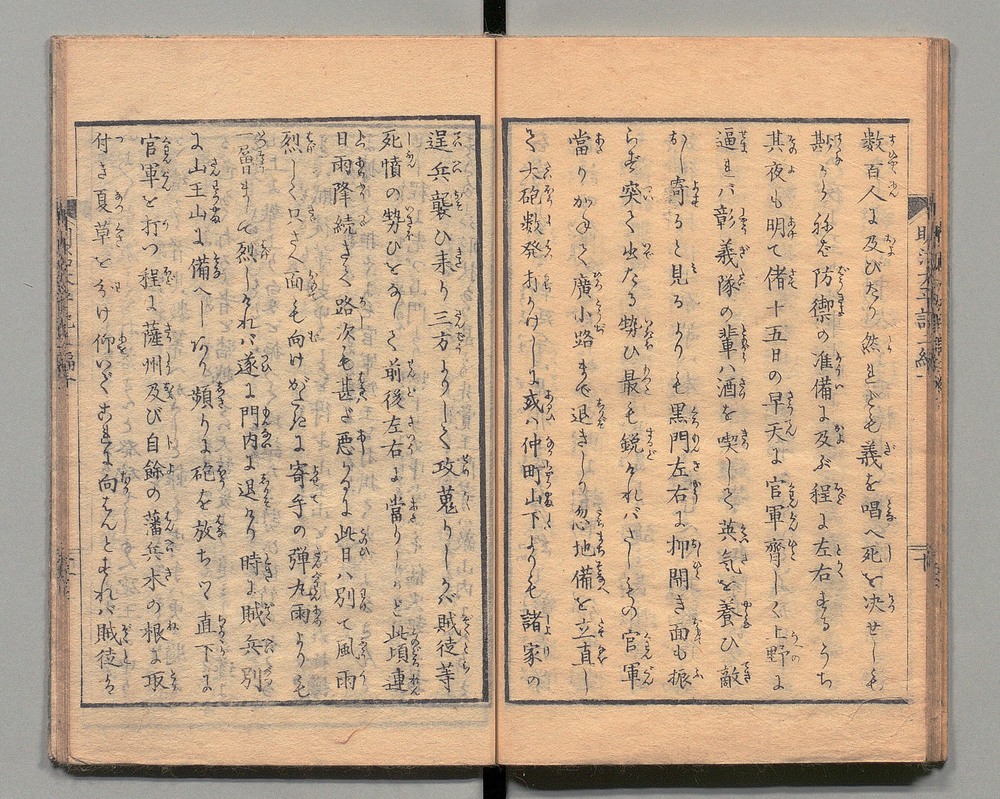 数百人に及びたり然れども義を唱へ死を决せしも
尠からねば防禦の准備に及ぶ程に左右するうち
其夜も明て偖十五日の早天に官軍齊しく上野に
逼れバ彰義隊の輩ハ酒を喫しして英気を養ひ敵
おし寄ると見るよりも黒門左右に押開き面も振
らず突て出たる勢ひ最も鋭けれバさしもの官軍
當りかねて廣小路まで退きしが忽地備を立直し
て大砲数発打かけしに或ハ仲町山下よりも諸家の
逞兵襲ひ来り三方よりして攻蒐りしかバ賊徒等
死憤の勢ひをなして前後左右に當りしが此頃連
日雨降続きて路次も甚だ悪かるに此日ハ別て風雨
烈しくしてさへ面も向けがたきに寄手の弾丸雨よりも
一層まして烈しけれバ遂に門内に退けり時に賊兵別
に山王山に備へしかり頻りに砲を放ちつゝ直下に
官軍を打つ程に薩州及び自餘の藩兵木の根に取
付き夏草をわけ仰いでこれに向はんとすれバ賊徒は
明治太平記二編